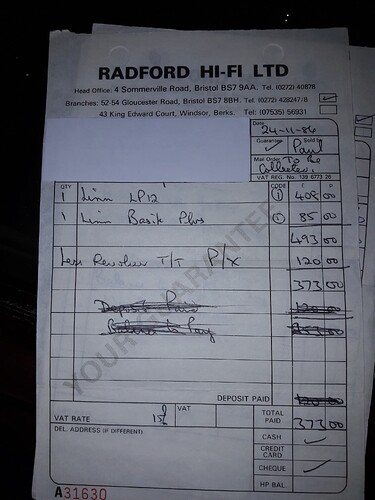 RADFORD HI-FI LTD
Head Office: 4 Sommerville Road, Bristol BS7 9AA. Tel. (0272) 40878
Branches: 52-54 Gloucester Road, Bristol BS7 8BH. Tel. (0272) 428247/8 ✓
43 King Edward Court, Windsor, Berks. Tel: (07535) 56931
Date 24-11-86
Guarantee ✓ Sold by Paul
Mail Order To Be
Collected.
VAT REG. No. 139 6773 26
QTY CODE £ p
1 Linn LP12 1 408 00
1 Linn Basik Plus 85 00
493 00
Less Revolver T/T P/X 120 00
373 00
Deposit Paid
Balance to Pay
YOUR GUARANTEE
DEPOSIT PAID
VAT RATE VAT TOTAL PAID 373 00
DEL. ADDRESS (IF DIFFERENT)
CASH ✓
CREDIT CARD
CHEQUE ✓
HP BAL
A31630